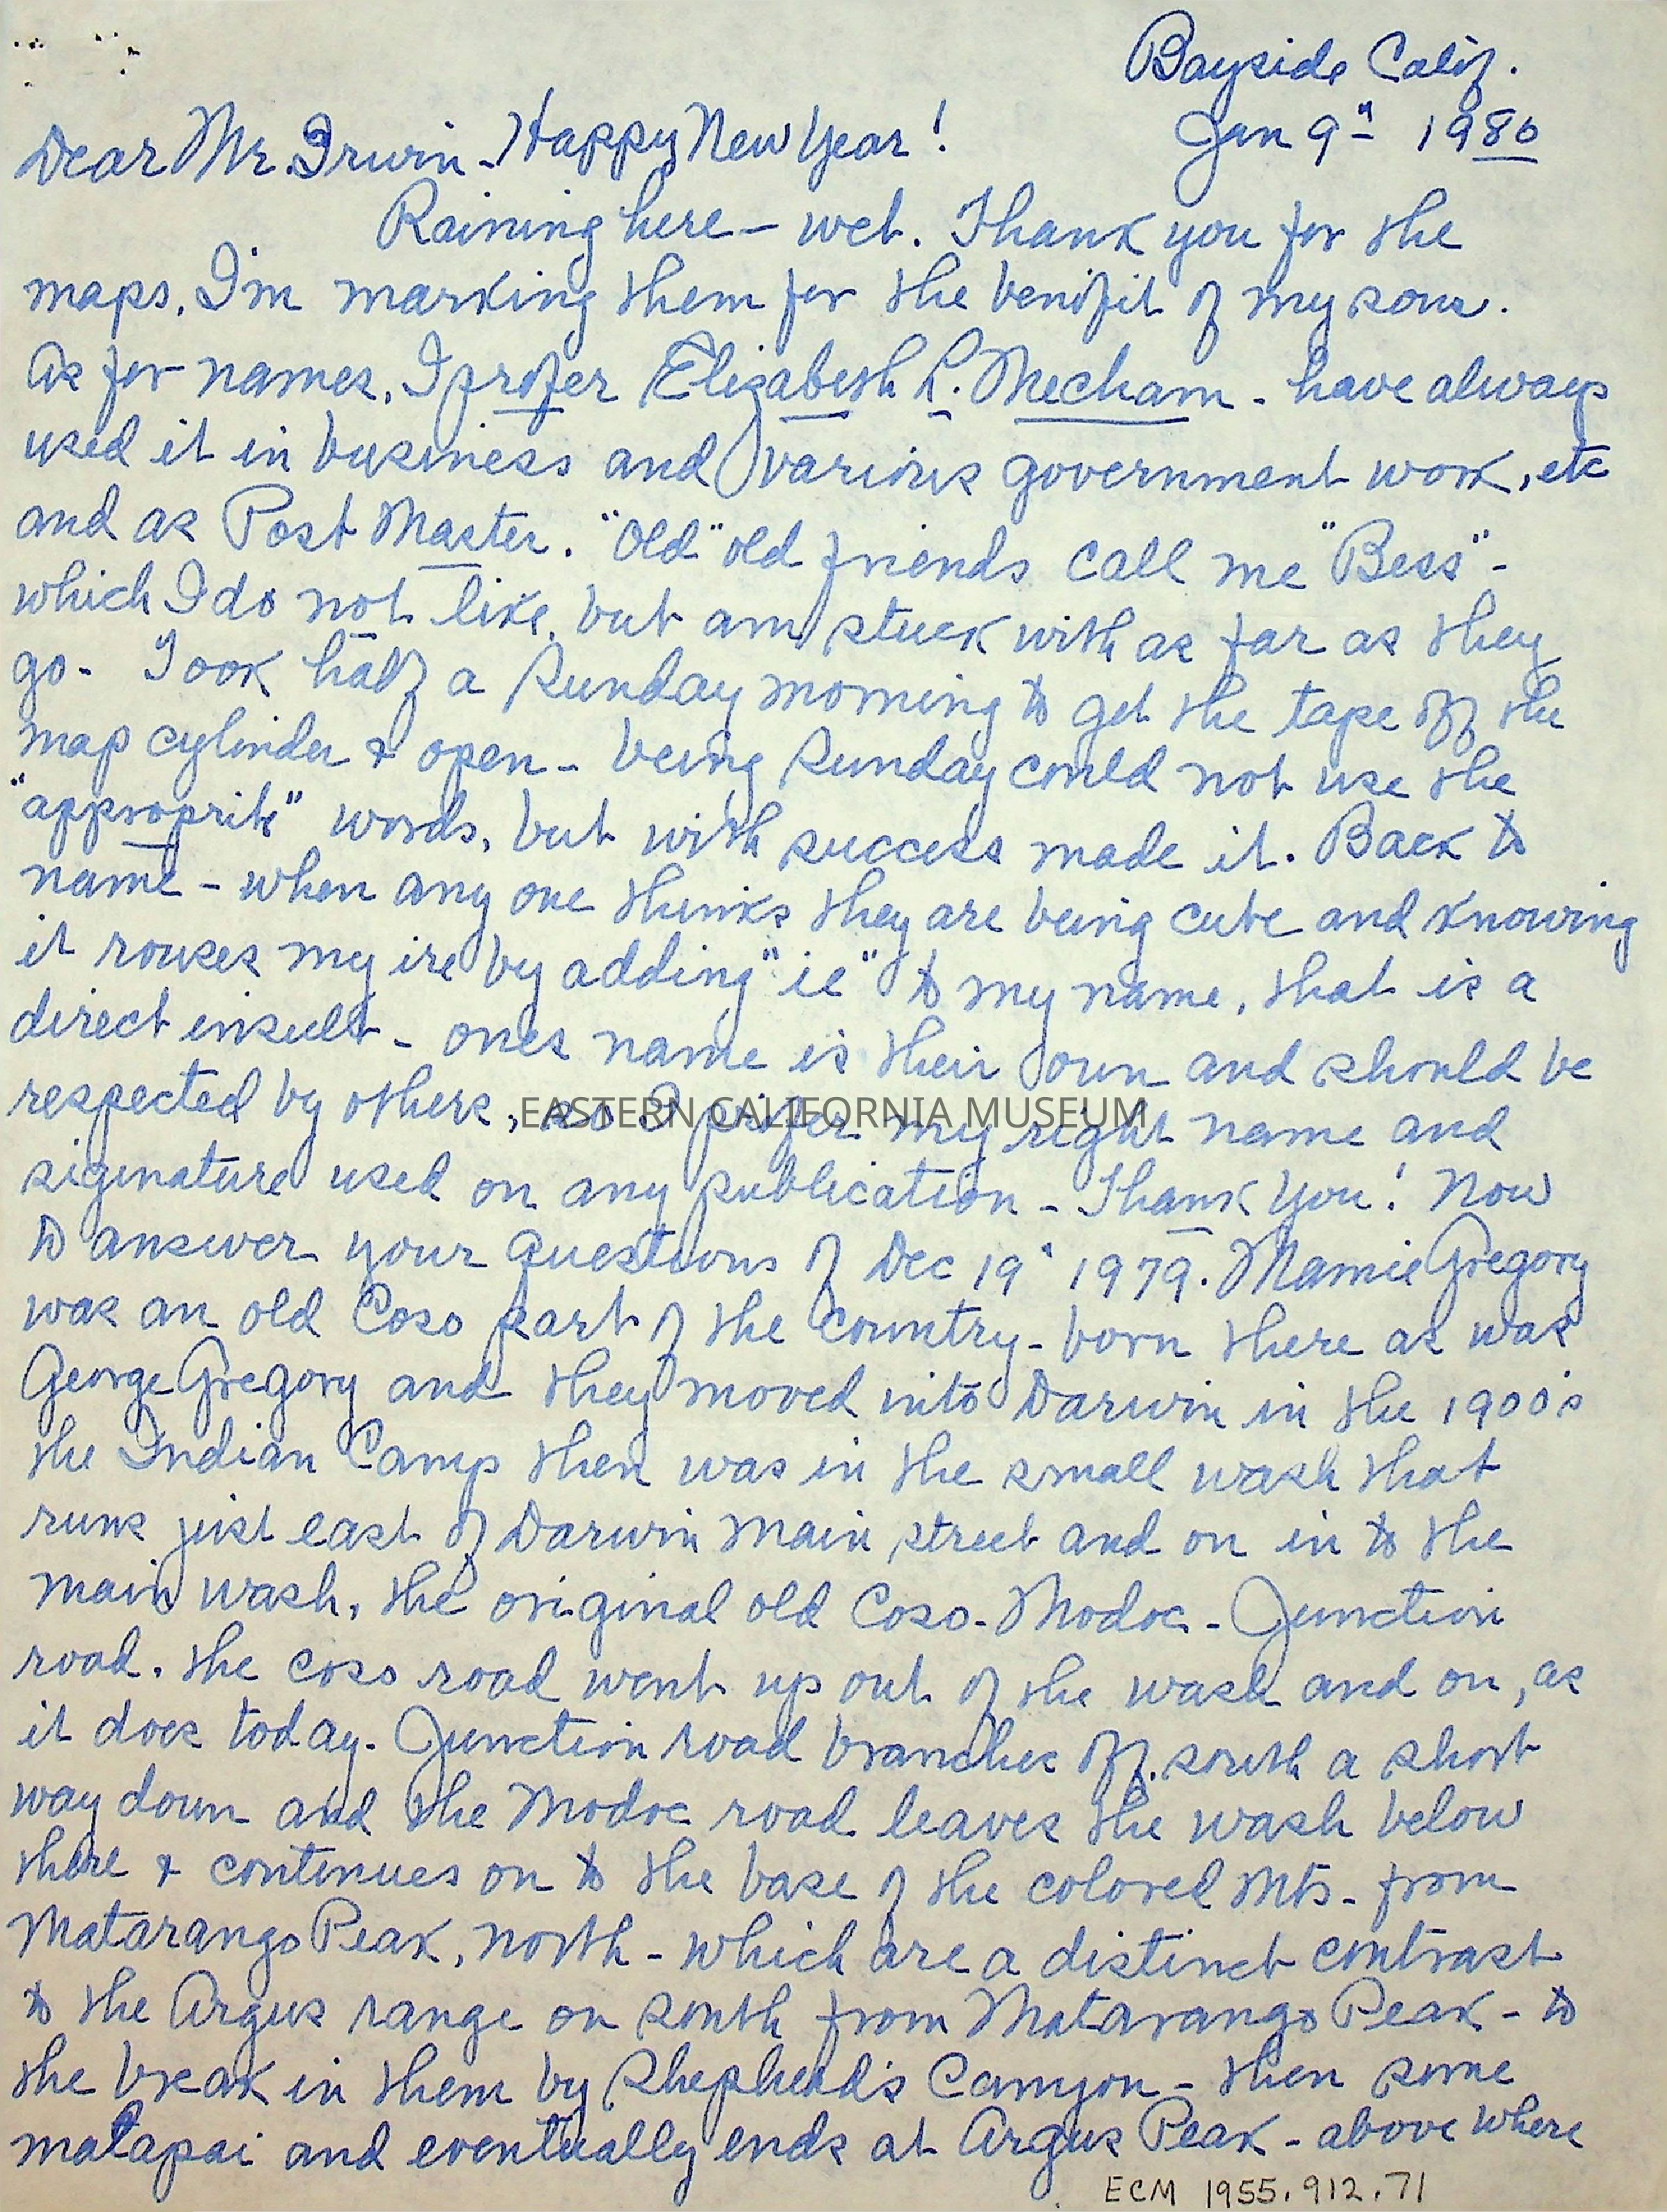 Bayside Calif.
Jan 9th 1980
Dear Mr. Irwin - Happy New Year!
Raining here - wet. Thank you for the
maps, I'm marking them for the benifit of my sons.
As for names, I prefer Elizabeth L. Mecham - have always
used it in business and various government work, etc
and as Post Master. "Old" old friends call me "Bess" -
which I do not like, but am stuck with as far as they
go - Took half a Sunday morning to get the tape off the
map cylinder & open - being Sunday could not use the
"approprite" words, but with success made it. Back to
name - when any one thinks they are being cute and knowing
it rouses my ire by adding "ie" to my name, that is a
direct insult - ones name is their own and should be
respected by others, so I prefer my right name and
EASTERN CALIFORNIA MUSEUM
siginature used on any publication - Thank You! Now
to answer your questions of Dec 19" 1979. Mamie Gregory
was an old Coso part of the country - born there as was
George Gregory and they moved into Darwin in the 1900's
the Indian Camp then was in the small wash that
runs just east of Darwin main street and on in to the
main wash, the original old Coso - Modoc - Junction
road. The coso road went up out of the wash and on, as
it does today. Junction road branches off south a short
way down and the Modoc road leaves the wash below
there & continues on to the base of the colored Mts - from
Matarango Peak, north - which are a distinct contrast
to the Argus range on south from Matarango Peak - to
the break in them by Shepheads Canyon - then some
malapai and eventually ends at Argus Peak - above where
ECM 1955.912.71